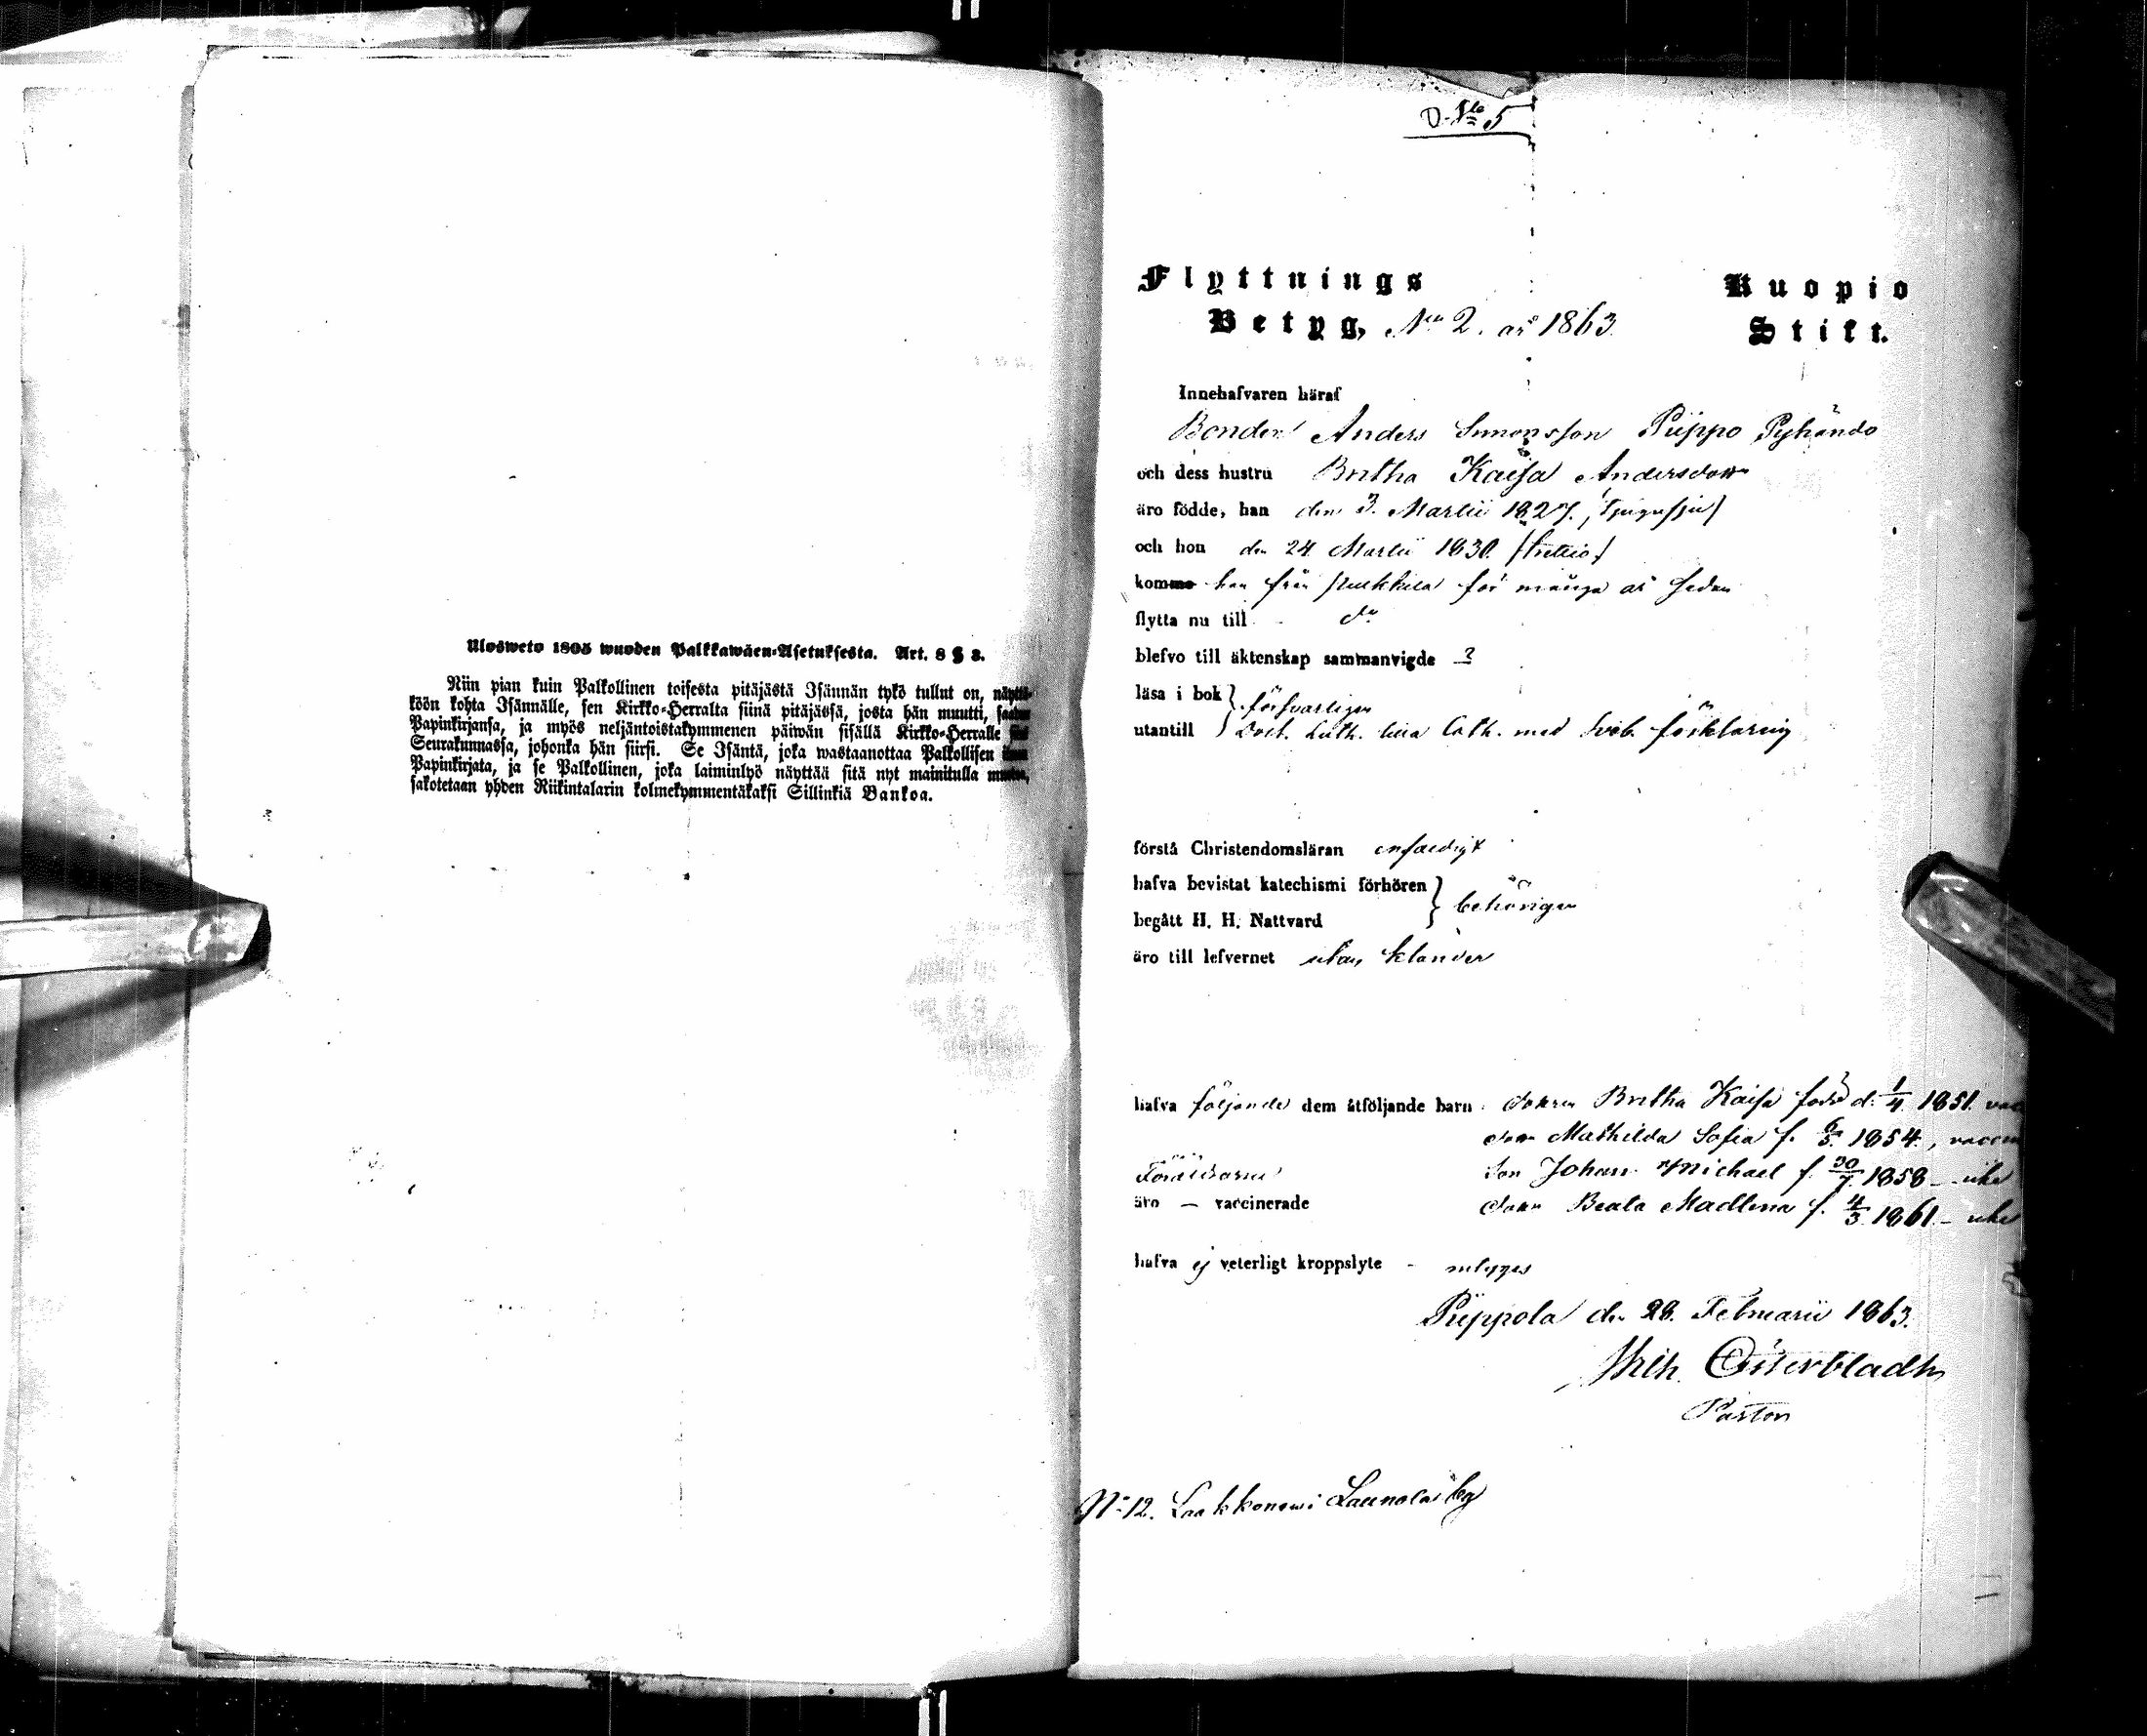 Ulosweto 1805 wuoden Palkkawäen-Asetuksesta. Art. 8 § 3.
Niin pian kuin Palkollinen toisesta pitäjästä Isännän tykö tullut on, näyttä-
köön kohta Isännälle, sen Kirkko-Herralta siinä pitäjässä, josta hän muutti, saadun
Papinkirjansa, ja myös neljäntoistakymmenen päiwän sisällä Kirkko-Herralle
Seurakunnassa, johonka hän siirsi. Se Isäntä, joka wastaanottaa Palkollisen
Papinkirjata, ja se Palkollinen, joka laiminlyö näyttää sitä nyt mainitulla
sakotetaan yhden Riikintalarin kolmekymmentäkaksi Sillinkiä Bankoa.
D. No 5
Flyttnings
Betyg, No 2. år 1863.
Kuopio
Stift.
Innehafvaren häraf
Bonden Anders Simonsson Piippo Pyhändö
och dess hustru Britha Kaisa Andersdotter
äro födde, han den 3. Martii 1827. (Tjugusju)
och hon den 24 Martii 1830. (trettio)
komme han från pulkkila för många år sedan
flytta nu till do
blefvo till äktenskap sammanvigde ?
läsa i bok } försvarligen
utantill Luth. lilla Cath. med Sveb. förklaring
förstå Christendomsläran enfaldigt
hafva bevistat katechismi förhören } behörigen
begått H. H. Nattvard
äro till lefvernet utan klander
hafva följande dem åtföljande barn: Britha Kaisa född d. 1/4 1851.
Mathilda Sofia f. 6/5. 1854,
Son Johan Michael f. 30/7 1858 - icke
Föräldrarne
äro — vaccinerade
Beata Madlena f. 4/3 1861 - icke
hafva ej veterligt kroppslyte - intygas
Piippola den 28. Februarii 1863.
Wilh. Österbladh
Pastor
No 12. Laakkonen i Launola by